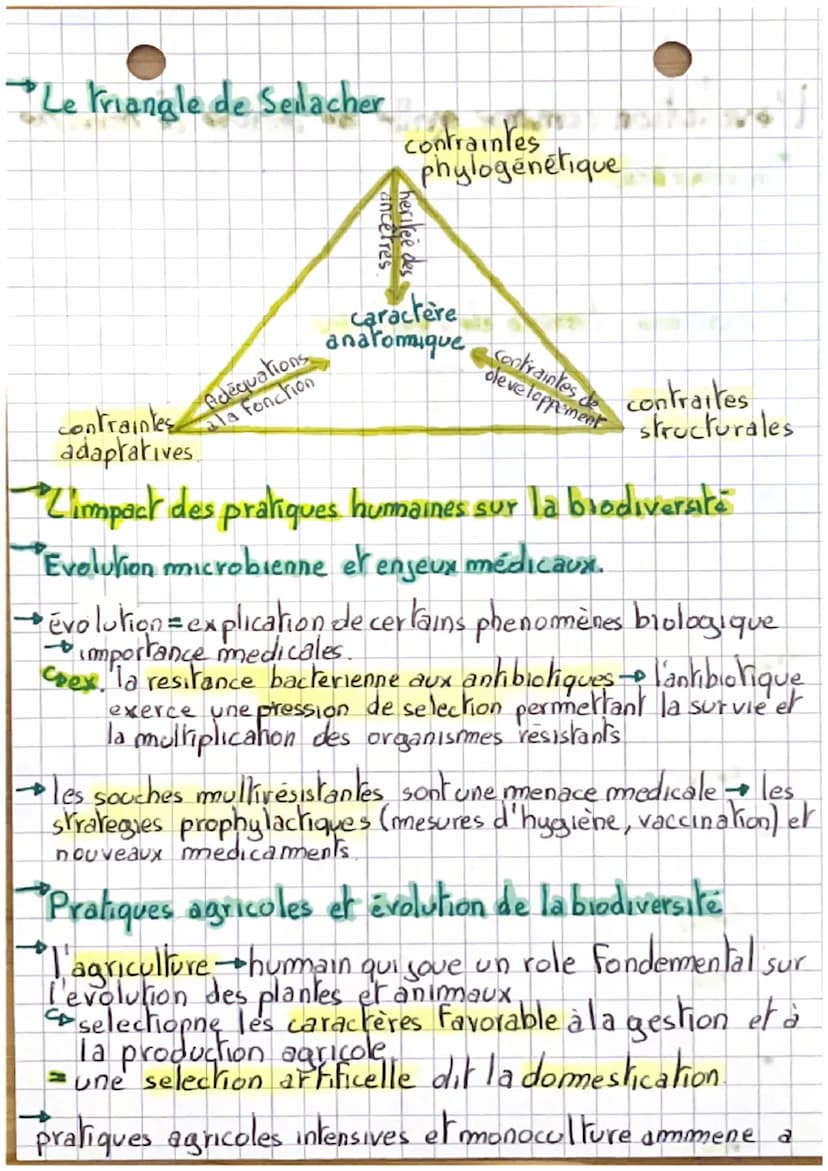 → Le triangle de Seilacher
contraintes
phylogénétique
héritée des
ancêtres
caractère
anatomique
Adéquations
à la fonction
contraintes de
developpement
contraintes
adaptatives
contraites
structurales
→ L'impact des pratiques humaines sur la biodiversité
→ Evolution microbienne et enjeux médicaux.
→ évolution = explication de certains phenomènes biologique
→ importance medicales.
↳ ex. la resitance bactérienne aux antibiotiques → l'antibiotique
exerce une pression de selection permettant la survie et
la multiplication des organismes résistants
→ les souches multirésistantes sont une menace medicale → les
strategies prophylactiques (mesures d'hygiène, vaccination) et
nouveaux medicaments.
→ Pratiques agricoles et évolution de la biodiversité
→ l'agriculture → humain qui joue un role fondemental sur
l'evolution des plantes et animaux
↳ selectionne les caractères favorable à la gestion et à
la production agricole
= une selection artificelle dit la domestication
→
pratiques agricoles intensives et monoculture ammene a